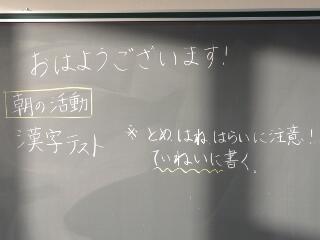 おはようございます!
朝の活動
漢字テスト ※とめ、はね、はらいに注意!
ていねいに書く。